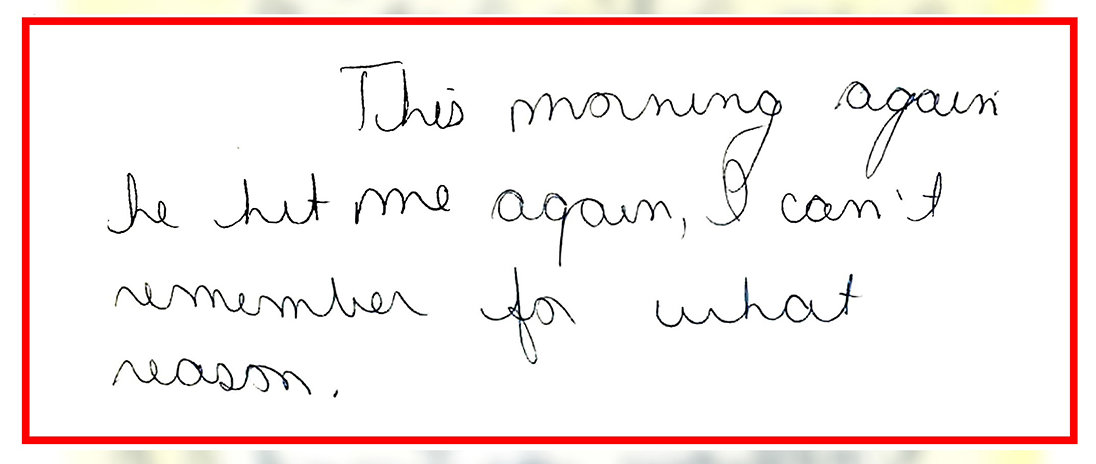 This morning again
he hit me again, I can't
remember for what
reason.